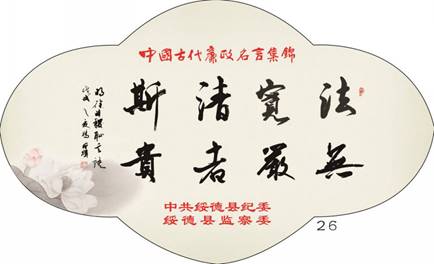 中國古代廉政名言集錦
法無
寬嚴
清者
斯貴
中共绥德县纪委
绥德县监察委
26